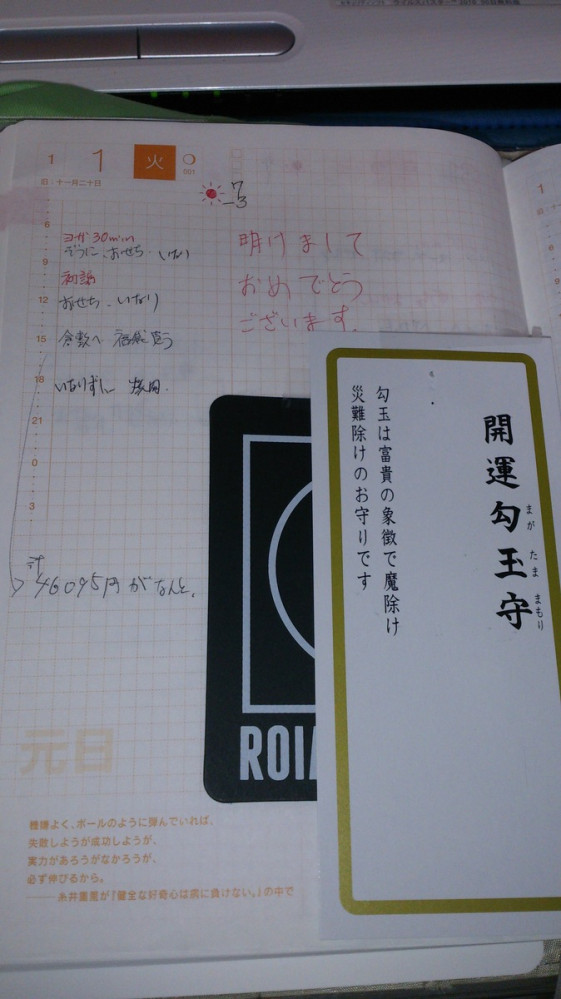 1 1 火
001
旧:十一月二十日
7
-3
6
ヨガ 30min
ぞうに、おせち、いなり
9
初詣
12
おせち、いなり
15
倉敷へ 福袋買う
18
いなりずし
21
0
3
計
46095円がなんと、
明けまして
おめでとう
ございます。
元日
機嫌よく、ボールのように弾んでいれば、
失敗しようが成功しようが、
実力があろうがなかろうが、
必ず伸びるから。
──糸井重里が『健全な好奇心は病に負けない。』の中で
ROIA
開運勾玉守
まが たま まもり
勾玉は富貴の象徴で魔除け
災難除けのお守りです
1